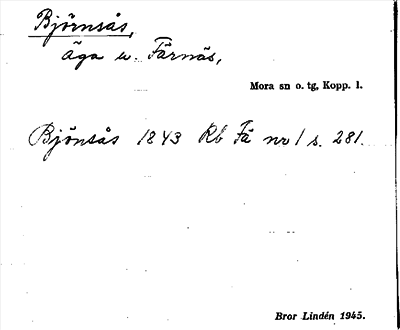 Björnsås,
äga u. Färnäs,
Mora sn o. tg, Kopp. l.
Bjönsås 1843 Rb Fä nr 1 s. 281.
Bror Lindén 1945.